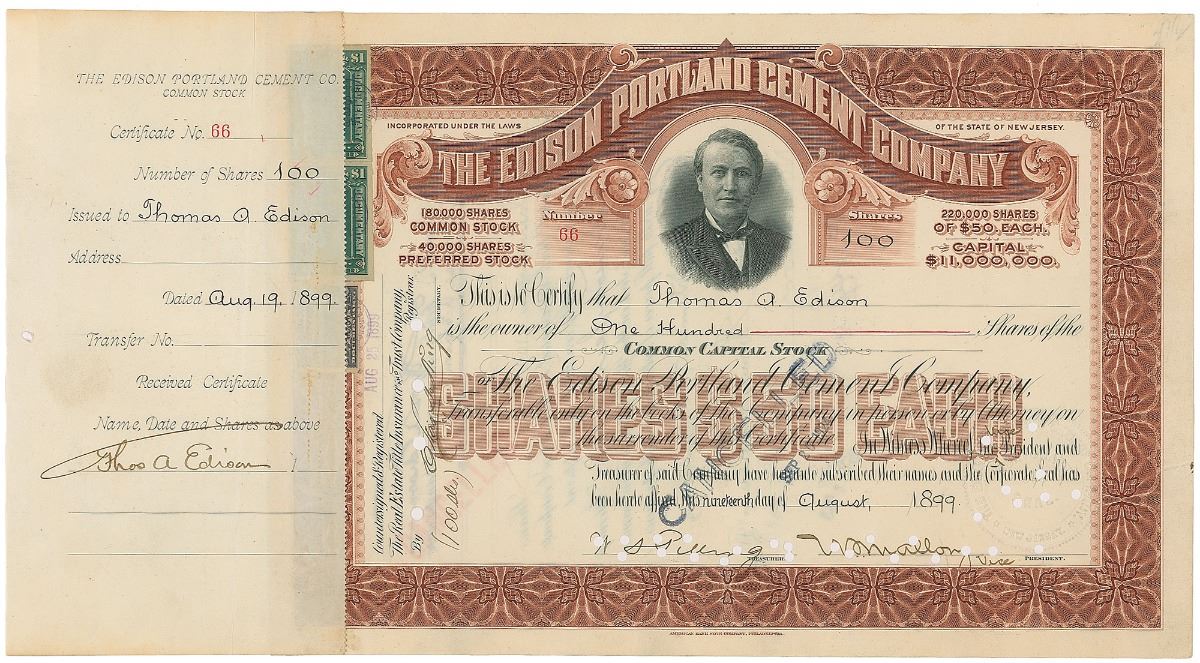 THE EDISON PORTLAND CEMENT CO.
COMMON STOCK
Certificate No. 66
Number of Shares 100
Issued to Thomas A. Edison
Address
Dated Aug. 19, 1899.
Transfer No.
Received Certificate
Name, Date and Shares as above
Thos A Edison
$1
DOCUMENTARY
$1
DOCUMENTARY
AUG 25 1899
THE EDISON PORTLAND CEMENT COMPANY
INCORPORATED UNDER THE LAWS
OF THE STATE OF NEW JERSEY.
180,000 SHARES
COMMON STOCK
40,000 SHARES
PREFERRED STOCK
Number
66
Shares
100
220,000 SHARES
OF $50. EACH.
CAPITAL
$11,000,000.
This is to Certify that Thomas A. Edison
is the owner of One Hundred Shares of the
COMMON CAPITAL STOCK
of The Edison Portland Cement Company,
transferable only on the books of the Company in person or by Attorney on
the surrender of this Certificate. In Witness Whereof, the President and
Treasurer of said Company have hereunto subscribed their names and the Corporate Seal has
been hereto affixed, this nineteenth day of August, 1899.
SHARES $50 EACH
CANCELLED
W S Pilling
TREASURER.
W S Mallory
Vice PRESIDENT.
Countersigned & Registered.
The Real Estate Title Insurance & Trust Company,
Registrar.
By
SECRETARY.
(100 shs)
AMERICAN BANK NOTE COMPANY, PHILADELPHIA.